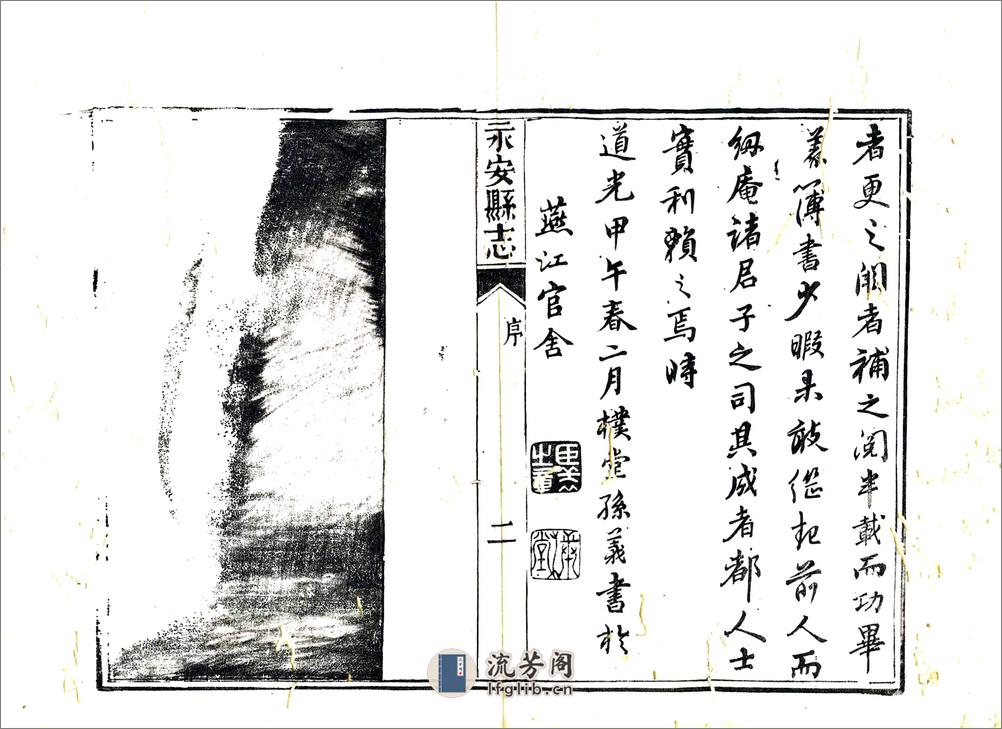 者更之闕者補之閱半載而功畢
義簿書少暇果敢繼軌前人而
紉庵諸君子之司其成者都人士
實利賴之焉時
道光甲午春二月樸堂孫義書於
燕江官舍
永安縣志
序
二
流芳阁
lfglib.cn